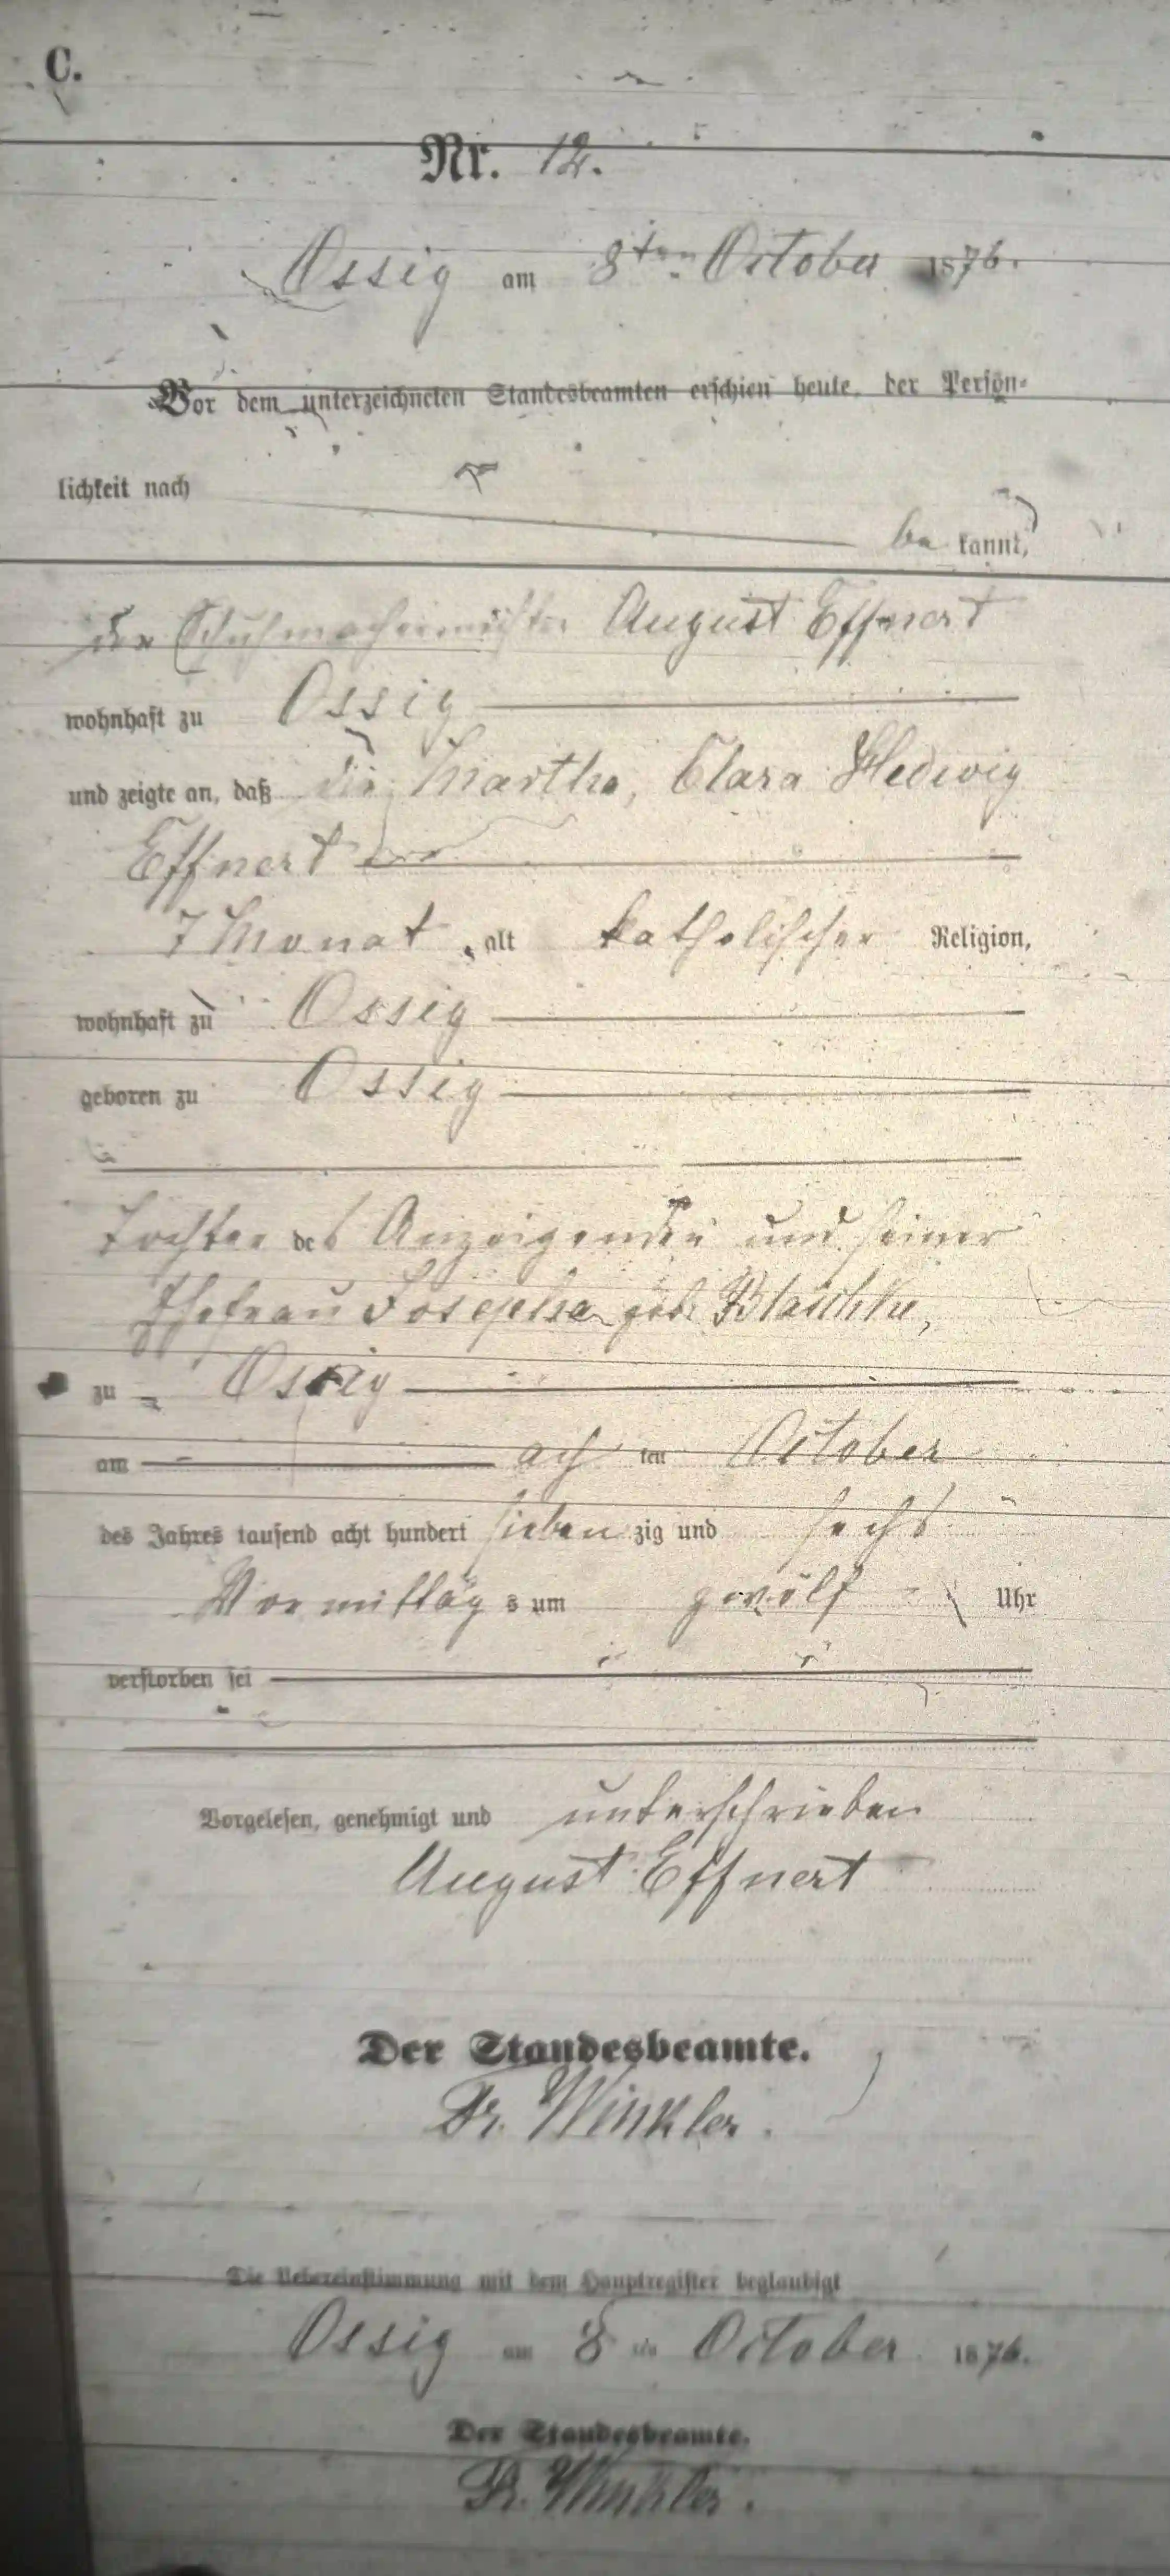 C.
Nr. 12.
Ossig am 8ten October 1876.
Vor dem unterzeichneten Standesbeamten erschien heute, der Persön-
lichkeit nach
be kannt,
der Schuhmachermeister August Effnert
wohnhaft zu Ossig
und zeigte an, daß die Martha, Clara Hedwig
Effnert
7 Monat, alt katholischer Religion,
wohnhaft zu Ossig
geboren zu Ossig
Tochter des Anzeigenden und seiner
Ehefrau Josepha geb. Blaschke,
zu Ossig
am ach ten October
des Jahres tausend acht hundert sieben zig und sechs
Vormittag s um zwölf Uhr
verstorben sei
Vorgelesen, genehmigt und unterschrieben
August Effnert
Der Standesbeamte.
Fr. Winkler.
Die Uebereinstimmung mit dem Hauptregister beglaubigt
Ossig am 8 ten October 1876.
Der Standesbeamte.
Fr. Winkler.